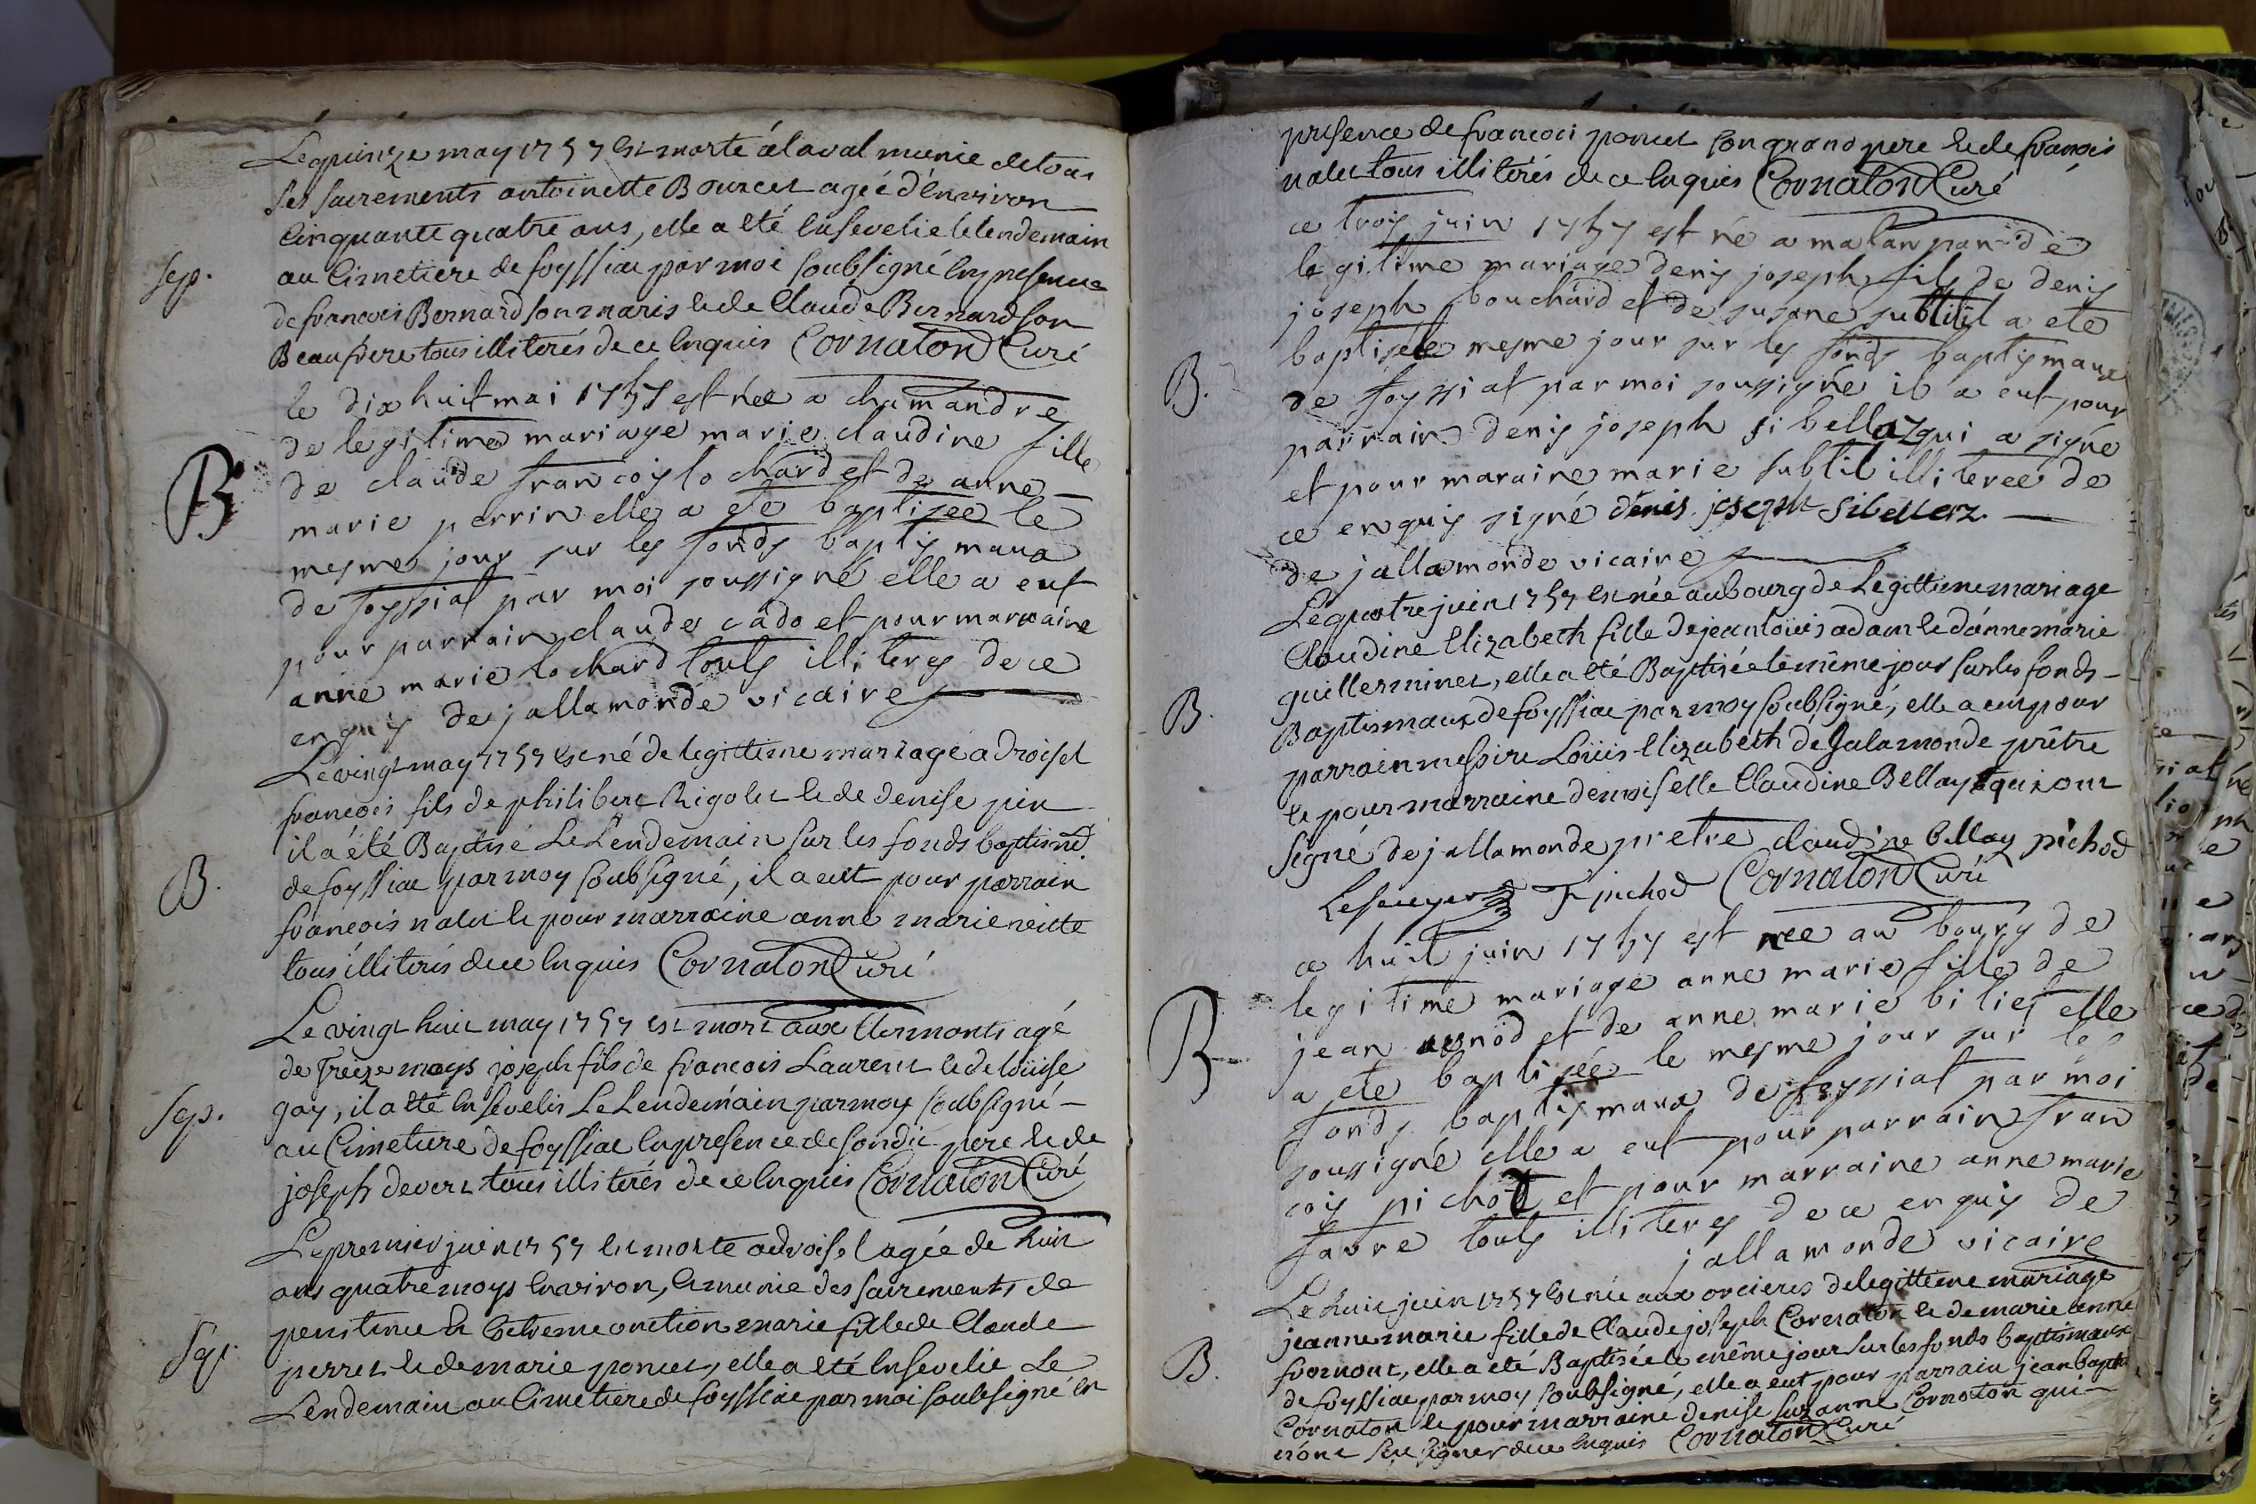 Le quinze may 1757 est morte a laval munie de tous
ses sacrements antoinette Bourcet agée d'environ
cinquante quatre ans, elle a été ensevelie le lendemain
Sep.
au cimetiere de foyssiac par moi soubsigné en presence
de francois Bernard son maris et de Claude Bernard son
Beaufrere tous illiterés de ce enquis Cornaton Curé
le dix huit mai 1757 est née a chamandre
de legitime mariage marie claudine fille
B
de claude francoys lochard et de anne
marie perrin elle a ete baptisee le
mesme jour sur les fonds baptismaux
de foyssiat par moi soussigné elle a eut
pour parrain claude cado et pour marraine
anne marie lochard touts illiteres de ce
enquis de jallamonde vicaire
Le vingt may 1757 est né de legittime mariage a Droisel
francois fils de philibert Rigolet et de denise pin
il a été Baptisé Le Lendemain sur les fonds baptism.
B.
de foyssiac par moy soubsigné, il a eut pour parrain
francois nalet et pour marraine anne marie
tous illiterés de ce enquis Cornaton Curé
Le vingt huit may 1757 est mort aux Clermonts agé
de treize moys joseph fils de francois Laurent et de louise
Sep.
gay, il a été ensevelis Le Lendemain par moy soubsigné
au Cimetiere de foyssiac en presence de sondit pere et de
joseph devert tous illiterés de ce enquis Cornaton Curé
Le premier juin 1757 est morte a droisel agée de huit
ans quatre moys environ, et munie des sacrements de
Sep.
penitence et extreme onction marie fille de Claude
perret et de marie poncet, elle a été ensevelie Le
Lendemain au Cimetiere de foyssiac par moi soubsigné en
presence de francois poncet son grand pere et de francois
nalet tous illiterés de ce enquis Cornaton Curé
ce troys juin 1757 est né a malan par de
legitime mariage denis joseph fils de denis
joseph bouchard et de susane subtil a ete
B.
baptisé le mesme jour sur les fonds baptismaux
de foyssiat par moi soussigné il a eut pour
parrain denis joseph sibellaz qui a signé
et pour maraine marie subtil illiteree de
ce enquis signé denis joseph sibellaz
de jallamonde vicaire
Le quatre juin 1757 est née au bourg de Legittime mariage
Claudine Elizabeth fille de jean loüis adam et d'anne marie
guillerminet, elle a été Baptisée le même jour sur les fonds
B.
Baptismaux de foyssiac par moy soubsigné, elle a eut pour
parrain messire Loüis Elizabeth de Jalamonde prêtre
et pour marraine demoiselle Claudine Bellay qui ont
signé de jallamonde pretre claudine bellay pichod
F pichod Cornaton Curé
ce huit juin 1757 est nee au bourg de
legitime mariage anne marie fille de
jean and de anne marie biliet elle
B
a ete baptisée le mesme jour sur les
fonds baptismaux de foyssiat par moi
soussigné elle a eut pour parrain fran
cois pichot et pour marraine anne marie
favre touts illiteres de ce enquis de
jallamonde vicaire
Le huit juin 1757 est née aux orcieres de legittime mariage
jeanne marie fille de Claude joseph Cornaton et de marie anne
fromont, elle a été Baptisée le même jour sur les fonds baptismaux
B.
de foyssiac par moy soubsigné, elle a eut pour parrain jean bapt.
Cornaton et pour marraine denise suzanne Cornaton qui
n'ont sçu signer de ce enquis Cornaton Curé